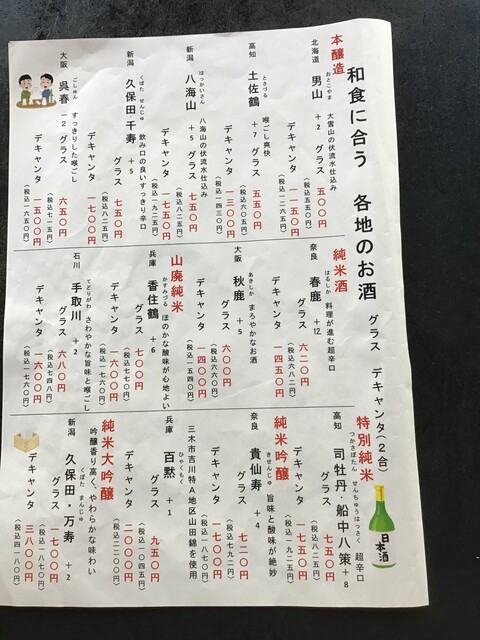 和食に合う 各地のお酒 グラス デキャンタ(2合)
本醸造
おとこやま
北海道 男山 +2 大雪山の伏流水仕込み
グラス 五〇〇円
(税込五五〇円)
デキャンタ 一一五〇円
(税込一二六五円)
とさづる
高知 土佐鶴 +7 喉ごし爽快
グラス 五五〇円
(税込六〇五円)
デキャンタ 一三〇〇円
(税込一四三〇円)
はっかいさん
新潟 八海山 +5 八海山の伏流水仕込み
グラス 七五〇円
(税込八二五円)
デキャンタ 一七五〇円
(税込一九二五円)
くぼた せんじゅ
新潟 久保田千寿 +5 飲み口の良いすっきり辛口
グラス 七五〇円
(税込八二五円)
デキャンタ 一七〇〇円
(税込一八七〇円)
ごしゅん
大阪 呉春 -2 すっきりした喉ごし
グラス 六五〇円
(税込七一五円)
デキャンタ 一五〇〇円
(税込一六五〇円)
純米酒
はるしか
奈良 春鹿 +12 料理が進む超辛口
グラス 六二〇円
(税込六八二円)
デキャンタ 一四五〇円
あきしか
大阪 秋鹿 +5 まろやかなお酒
グラス 六〇〇円
(税込六六〇円)
デキャンタ 一四〇〇円
(税込一五四〇円)
山廃純米
かすみづる
兵庫 香住鶴 +6 ほのかな酸味が心地よい
グラス 七〇〇円
(税込七七〇円)
デキャンタ 一六〇〇円
(税込一七六〇円)
てどりがわ
石川 手取川 +2 さわやかな旨味と喉ごし
グラス 六八〇円
(税込七四八円)
デキャンタ 一六〇〇円
(税込一七六〇円)
特別純米
つかさぼたん せんちゅうはっさく
高知 司牡丹・船中八策 +8 超辛口
グラス 七五〇円
(税込八二五円)
デキャンタ 一七五〇円
(税込一九二五円)
純米吟醸
きせんじゅ
奈良 貴仙寿 +4 旨味と酸味が絶妙
グラス 七二〇円
(税込七九二円)
デキャンタ 一七〇〇円
(税込一八七〇円)
三木市吉川特A地区山田錦を使用
ひゃくもく
兵庫 百黙 +1
グラス 九五〇円
(税込一〇四五円)
デキャンタ 二〇〇〇円
(税込二二〇〇円)
純米大吟醸
吟醸香り高く、やわらかな味わい
くぼた まんじゅ
新潟 久保田・万寿 +2
グラス 一七〇〇円
(税込一八七〇円)
デキャンタ 三八〇〇円
(税込四一八〇円)
日本酒